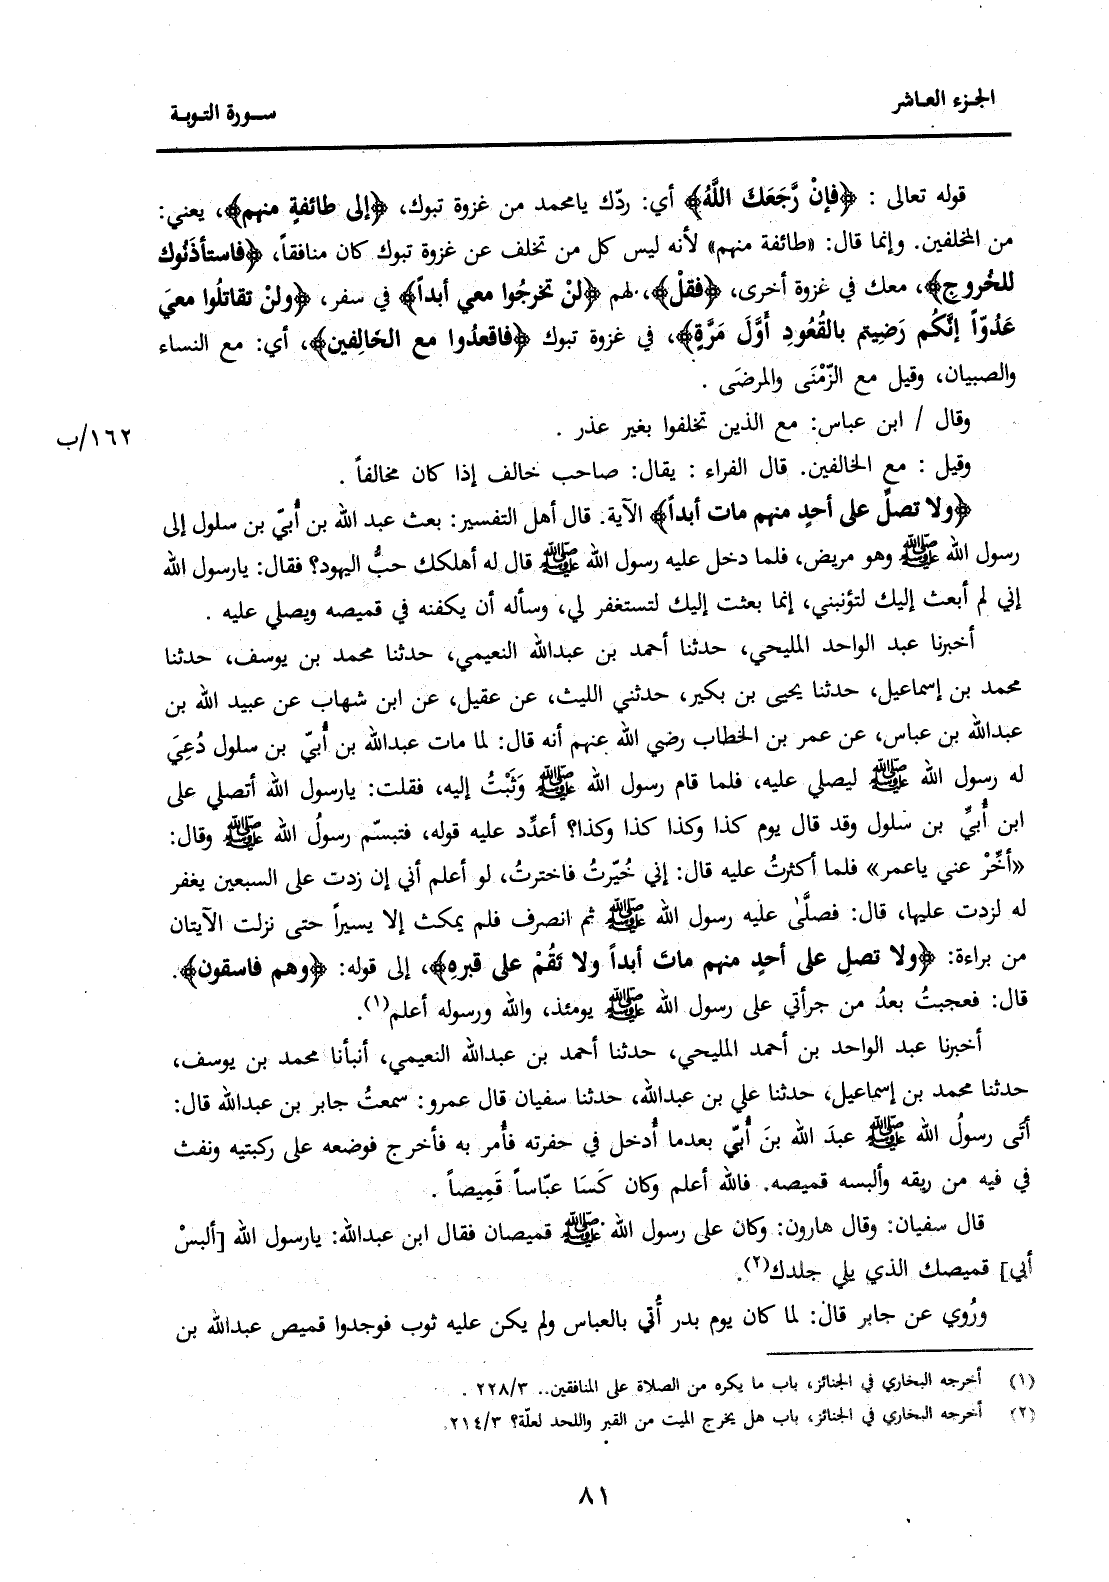 الجزء العاشر
سورة التوبة
قوله تعالى : ﴿فإنْ رَّجَعَكَ اللَّهُ﴾ أي: ردّك يامحمد من غزوة تبوك، ﴿إلى طائفةٍ منهم﴾، يعني:
من المخلفين. وإنما قال: «طائفة منهم» لأنه ليس كل من تخلف عن غزوة تبوك كان منافقاً، ﴿فاستأذَنُوك
للخُروجِ﴾، معك في غزوة أخرى، ﴿فقلْ﴾، لهم ﴿لنْ تخرجُوا معي أبداً﴾ في سفر، ﴿ولنْ تقاتلُوا معيَ
عَدُوّاً إنَّكُم رَضِيتم بالقُعُودِ أَوَّلَ مَرَّةٍ﴾، في غزوة تبوك ﴿فاقعدُوا مع الخَالِفين﴾، أي: مع النساء
والصبيان، وقيل مع الزّمْنَى والمرضَى .
وقال / ابن عباس: مع الذين تخلفوا بغير عذر .
١٦٢/ب
وقيل : مع الخالفين. قال الفراء : يقال: صاحب خالف إذا كان مخالفاً .
﴿ولا تصلِّ على أحدٍ منهم مات أبداً﴾ الآية. قال أهل التفسير: بعث عبد الله بن أُبيّ بن سلول إلى
رسول الله ﷺ وهو مريض، فلما دخل عليه رسول الله ﷺ قال له أهلكك حبُّ اليهود؟ فقال: يارسول الله
إني لم أبعث إليك لتؤنبني، إنما بعثت إليك لتستغفر لي، وسأله أن يكفنه في قميصه ويصلي عليه .
أخبرنا عبد الواحد المليحي، حدثنا أحمد بن عبدالله النعيمي، حدثنا محمد بن يوسف، حدثنا
محمد بن إسماعيل، حدثنا يحيى بن بكير، حدثني الليث، عن عقيل، عن ابن شهاب عن عبيد الله بن
عبدالله بن عباس، عن عمر بن الخطاب رضي الله عنهم أنه قال: لما مات عبدالله بن أُبيّ بن سلول دُعِيَ
له رسول الله ﷺ ليصلي عليه، فلما قام رسول الله ﷺ وَثَبْتُ إليه، فقلت: يارسول الله أتصلي على
ابن أُبيِّ بن سلول وقد قال يوم كذا وكذا كذا وكذا؟ أعدِّد عليه قوله، فتبسّم رسولُ الله ﷺ وقال:
«أخِّرْ عني ياعمر» فلما أكثرتُ عليه قال: إني خُيّرتُ فاخترتُ، لو أعلم أني إن زدت على السبعين يغفر
له لزدت عليها، قال: فصلَّىٰ عليه رسول الله ﷺ ثم انصرف فلم يمكث إلا يسيراً حتى نزلت الآيتان
من براءة: ﴿ولا تصلِ على أحدٍ منهم ماتَ أبداً ولا تَقُمْ على قبرِهِ﴾، إلى قوله: ﴿وهم فاسقون﴾.
قال: فعجبتُ بعدُ من جرأتي على رسول الله ﷺ يومئذ، والله ورسوله أعلم(١).
أخبرنا عبد الواحد بن أحمد المليحي، حدثنا أحمد بن عبدالله النعيمي، أنبأنا محمد بن يوسف،
حدثنا محمد بن إسماعيل، حدثنا علي بن عبدالله، حدثنا سفيان قال عمرو: سمعتُ جابر بن عبدالله قال:
أتَى رسولُ الله ﷺ عبدَ الله بنَ أُبيّ بعدما أُدخل في حفرته فأُمر به فأخرج فوضعه على ركبتيه ونفث
في فيه من ريقه وألبسه قميصه. فالله أعلم وكان كَسَا عبّاساً قَمِيصاً .
قال سفيان: وقال هارون: وكان على رسول الله ﷺ قميصان فقال ابن عبدالله: يارسول الله [ألبسْ
أبي] قميصك الذي يلي جلدك(٢).
ورُوي عن جابر قال: لما كان يوم بدر أُتي بالعباس ولم يكن عليه ثوب فوجدوا قميص عبدالله بن
(١) أخرجه البخاري في الجنائز، باب ما يكره من الصلاة على المنافقين.. ٢٢٨/٣ .
(٢) أخرجه البخاري في الجنائز، باب هل يخرج الميت من القبر واللحد لعلّة؟ ٢١٤/٣.
٨١